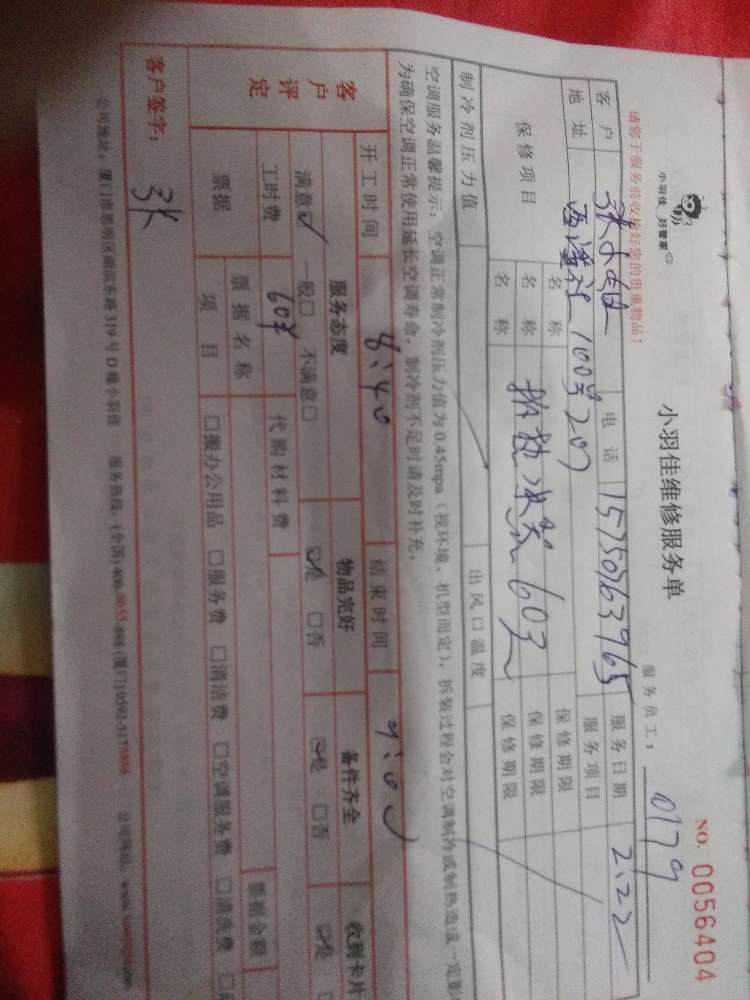 小羽佳 好管家
小羽佳维修服务单
NO. 0056404
请您于服务前收捡好您的贵重物品！
服务员工： 0179
客户 电话 15750963965 服务日期 2.22
地址 西滨社100号207 服务项目
保修项目 名称 保修期限
名称 60元 保修期限
名称 保修期限
制冷剂压力值 出风口温度
空调服务温馨提示：空调正常制冷剂压力值为0.45mpa（视环境、机型而定），拆装过程会对空调制冷或制热造成一定影
为确保空调正常使用延长空调寿命，制冷剂不足时请及时补充。
开工时间 8:40 结束时间 9:00
客户评定 服务态度 物品完好 备件齐全 收到卡片
满意☑ 一般□ 不满意□ ☑是 □否 ☑是 □否 ☑是
工时费 60元 代购材料费
票据 票据名称 票据金额
项目 □搬办公用品 □服务费 □清洁费 □空调服务费 □清洗费
客户签字： 张
公司地址：厦门市思明区湖滨东路319号D幢小羽佳 服务热线：(全国)400-6655-888 (厦门)0592-5178888 公司网站：www.